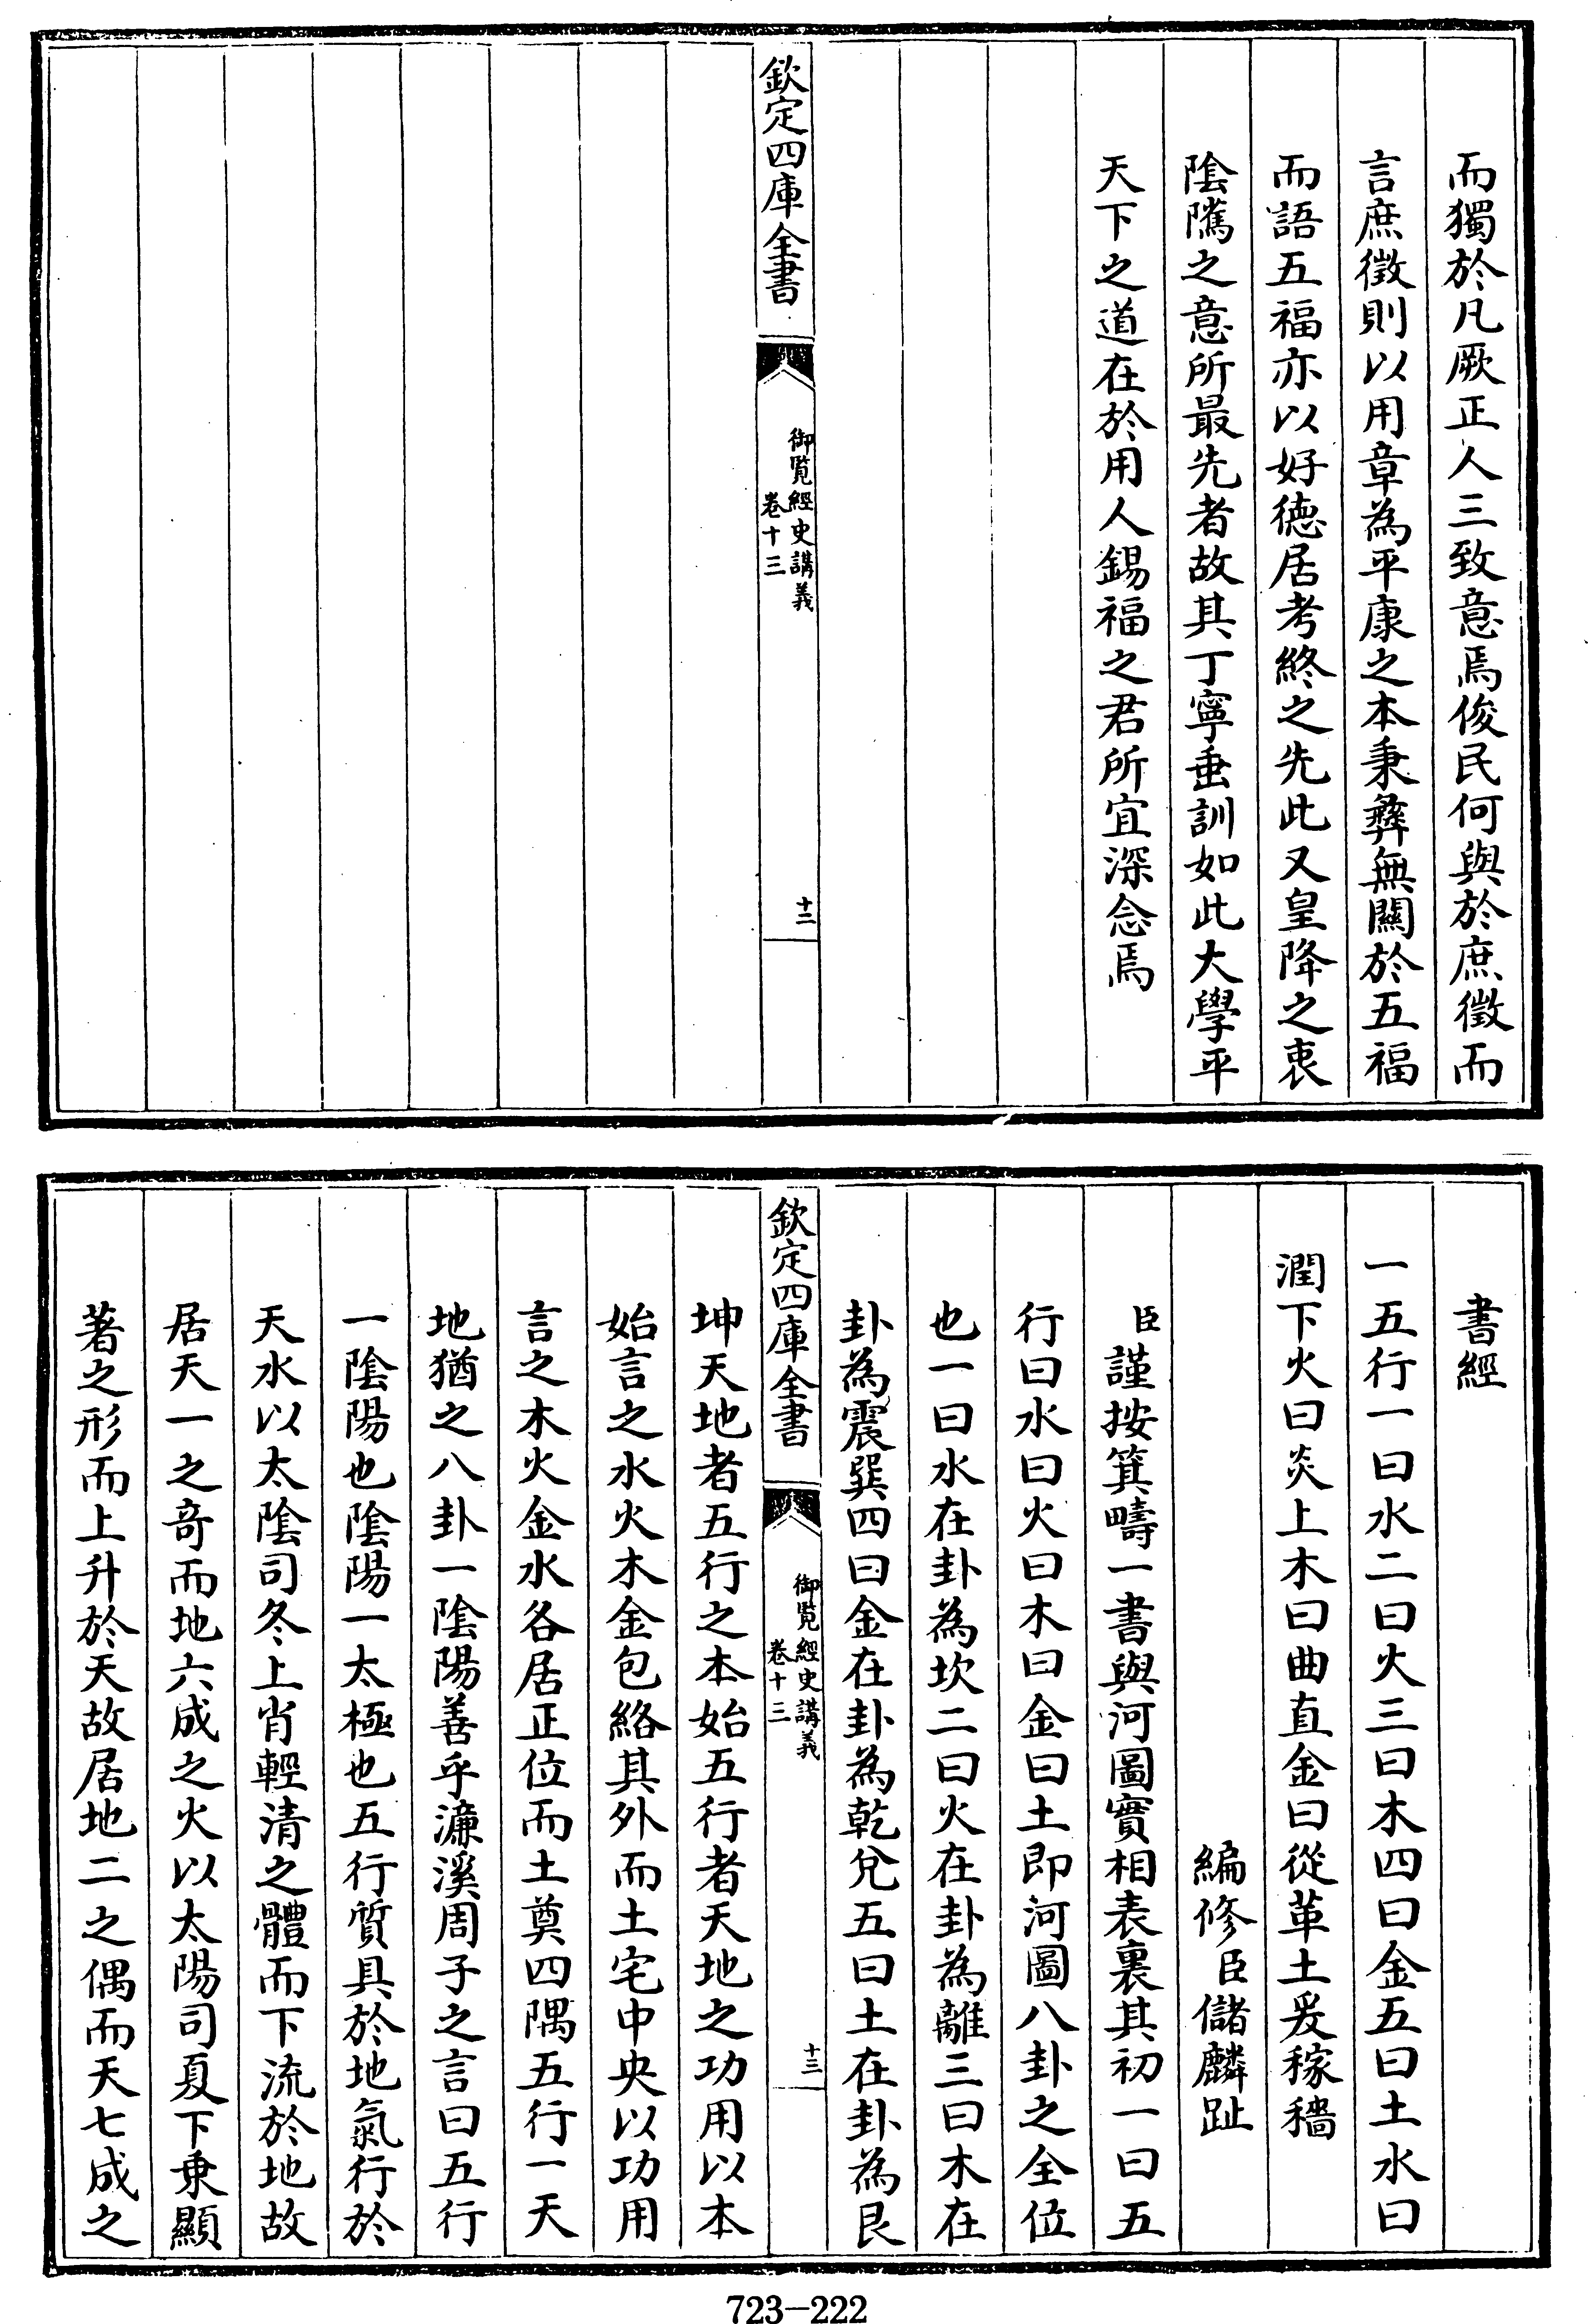 而獨於凡厥正人三致意焉俊民何與於庶徵而
言庶徵則以用章為平康之本秉彝無關於五福
而語五福亦以好德居考終之先此又皇降之衷
陰隲之意所最先者故其丁寧垂訓如此大學平
天下之道在於用人錫福之君所宜深念焉
欽定四庫全書
御覽經史講義
卷十三
十二
書經
一五行一曰水二曰火三曰木四曰金五曰土水曰
潤下火曰炎上木曰曲直金曰從革土爰稼穡
編修臣儲麟趾
臣謹按箕疇一書與河圖實相表裏其初一曰五
行曰水曰火曰木曰金曰土即河圖八卦之全位
也一曰水在卦為坎二曰火在卦為離三曰木在
卦為震巽四曰金在卦為乾兌五曰土在卦為艮
欽定四庫全書
御覽經史講義
卷十三
十三
坤天地者五行之本始五行者天地之功用以本
始言之水火木金包絡其外而土宅中央以功用
言之木火金水各居正位而土奠四隅五行一天
地猶之八卦一陰陽善乎濂溪周子之言曰五行
一陰陽也陰陽一太極也五行質具於地氣行於
天水以太陰司冬上肖輕清之體而下流於地故
居天一之奇而地六成之火以太陽司夏下秉顯
著之形而上升於天故居地二之偶而天七成之
723-222